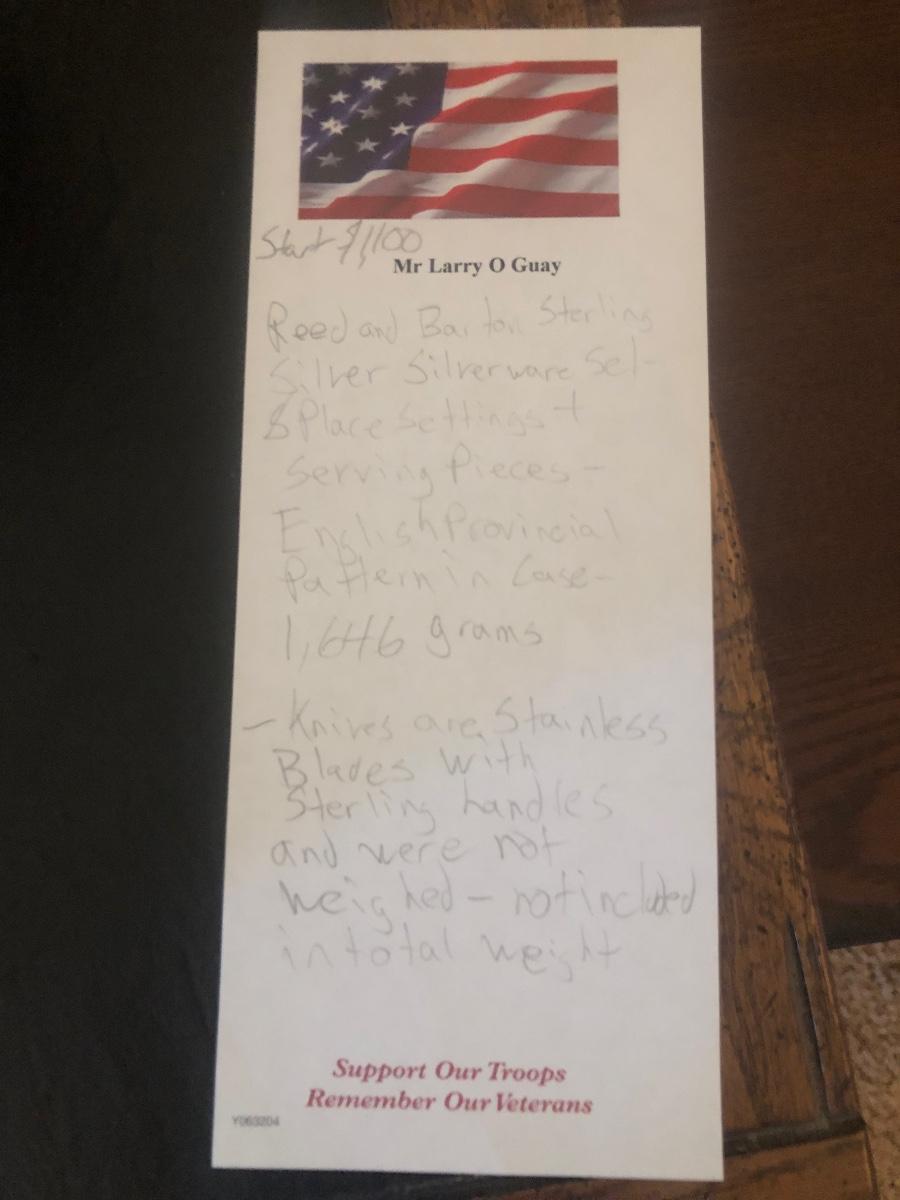 Start $1,100
Mr Larry O Guay
Reed and Barton Sterling
Silver Silverware Set-
8 Place Settings +
Serving Pieces -
English Provincial
Pattern in Case-
1,646 grams
- Knives are Stainless
Blades With
Sterling handles
and were not
weighed - not included
in total weight
Support Our Troops
Remember Our Veterans
Y063204